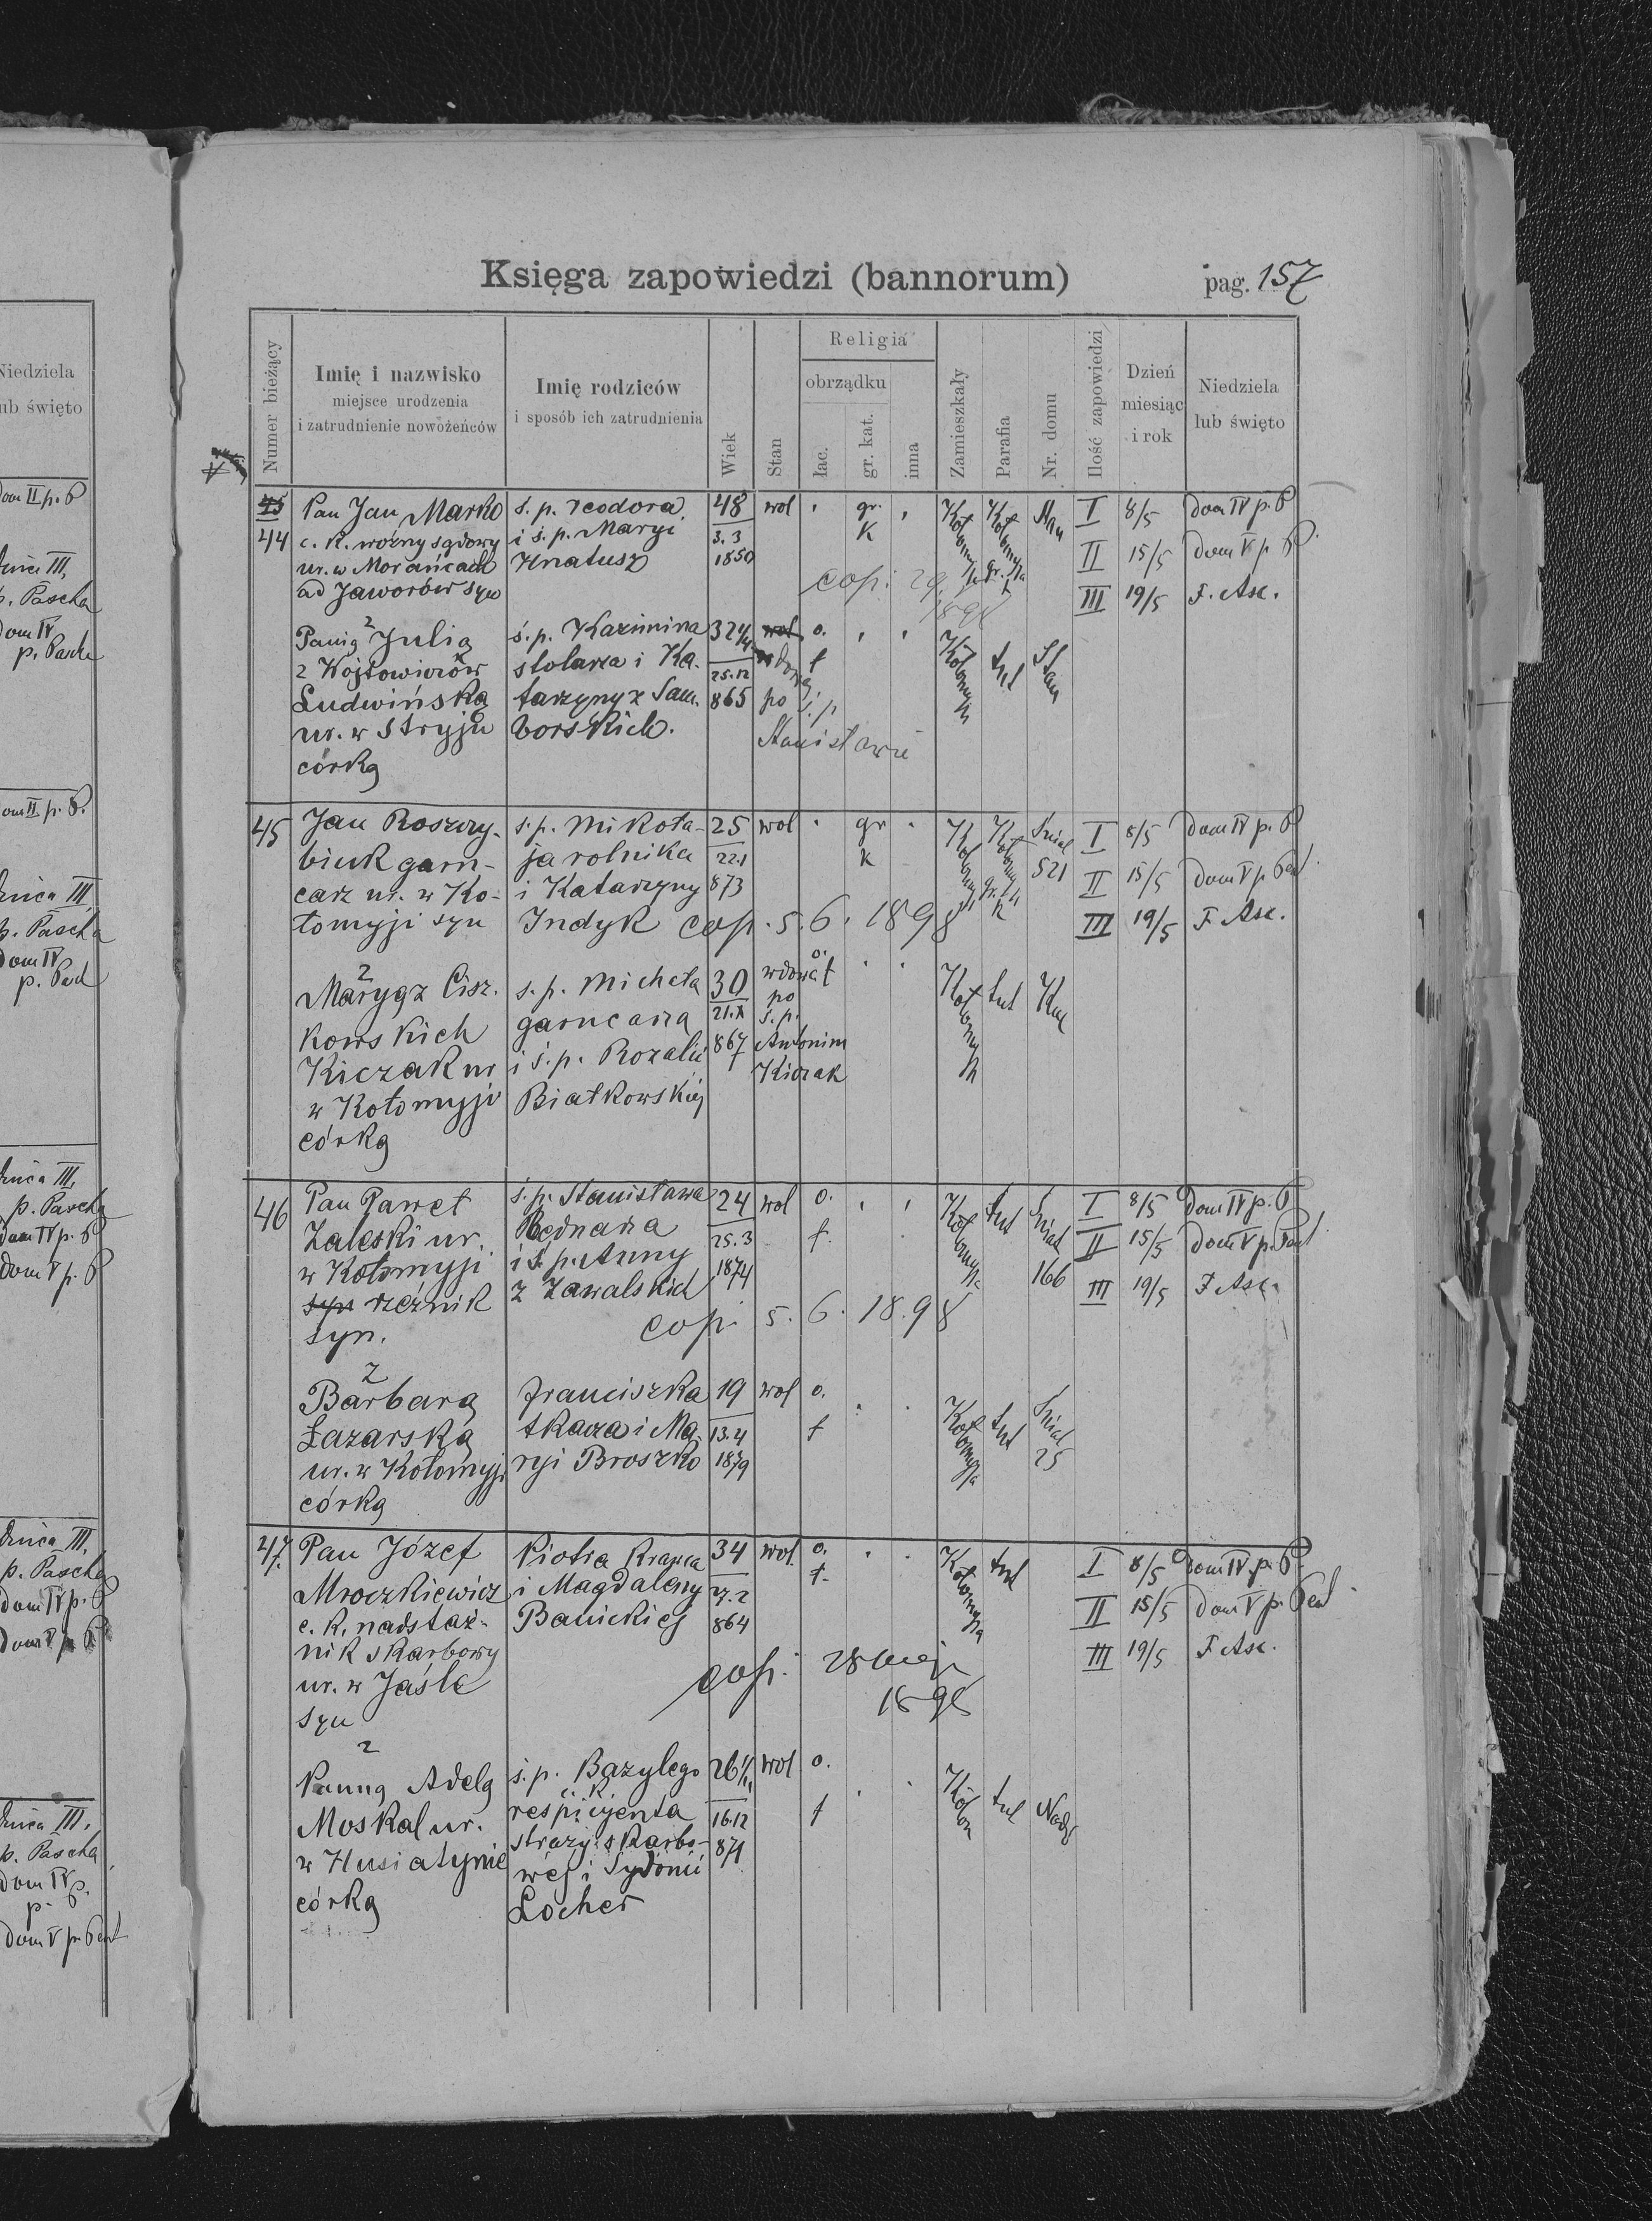 Księga zapowiedzi (bannorum)
pag. 157
Numer bieżący
Imię i nazwisko
miejsce urodzenia
i zatrudnienie nowożeńców
Imię rodziców
i sposób ich zatrudnienia
Wiek
Stan
Religia
obrządku
łac.
gr. kat.
inna
Zamieszkały
Parafia
Nr. domu
Ilość zapowiedzi
Dzień
miesiąc
i rok
Niedziela
lub święto
45 Pan Jan Marko ś. p. Teodora 48 wol gr. I 8/5 Dom IV p. P
44 c. k. woźny sądowy i ś. p. Maryi 3.3 K Kołomyja II 15/5 Dom V p. P.
ur. w Morańcach Hnatusz 1850
ad Jaworów syn cop. 29. III 19/5 F. Asc.
1898
z
Panią Julią ś. p. Kazimirza 32 wol o.
z Wojtowiczów stolarza i Ka- wdową t Kołomyja tut Stan
25.12
Ludwińską tarzyny z Sam- 865 po ś. p
ur. w Stryju borskich. Stanisławie
córką
45 Jan Roszczy- ś. p. Mikoła- 25 wol gr I 8/5 Dom IV p. P
biuk garn- ja rolnika 22.1 k Kołomyja Sniat 521 II 15/5 Dom V p. Pent.
carz ur. w Ko- i Katarzyny 873
łomyji syn Indyk cop. 5. 6. 1898 III 19/5 F. Asc.
z
Maryą z Cisz- ś. p. Michała 30 wdowa o. t Kołomyja tut
kowskich garncarza 21.X po ś. p.
Kiczak ur i ś. p. Rozalii 867 Antonim
w Kołomyji Białkowskiej Kiczak
córką
46 Pan Paweł ś. p. Stanisława 24 wol o. Kołomyja tut Sniat I 8/5 Dom IV p. P
Zaleski ur. Bednarza 25.3 t. 166 II 15/5 Dom V p. Pent.
w Kołomyji i ś. p. Anny 1874
syn rzeźnik z Zawalskich III 19/5 F. Asc.
syn. cop. 5. 6. 18.98
z
Barbarą Franciszka 19 wol o.
Łazarską tkacza i Ma- 13.4 t Kołomyja tut Sniat 25
ur. w Kołomyji ryi Broszko 1879
córką
47. Pan Józef Piotra Krawca 34 wol. o. Kołomyja tut I 8/5 Dom IV p. P
Mroczkiewicz i Magdaleny 27.2 t. II 15/5 Dom V p. Pent.
c. k. nadstraż- Banickiej 864
nik skarbowy III 19/5 F. Asc.
ur. w Jaśle cop. 28 maja
syn 1898
z
Panną Adelą ś. p. Bazylego 26 wol o.
c. k.
Moskal ur. respicyenta 16.12 t Kołom tut Nadw
w Husiatynie straży skarbo- 871
córką wej i Sydonii
Locher
Niedziela
lub święto
Dom II p. P
p. Pascha
Dom IV
p. Pascha
Dom II p. P.
p. Pascha
Dom IV
p. Pasch
p. Pascha
Dom IV p. P
Dom V p. P
p. Pascha
Dom IV p. P
Dom V p. P
p. Pascha
Dom IV p.
p.
Dom V p. Pent